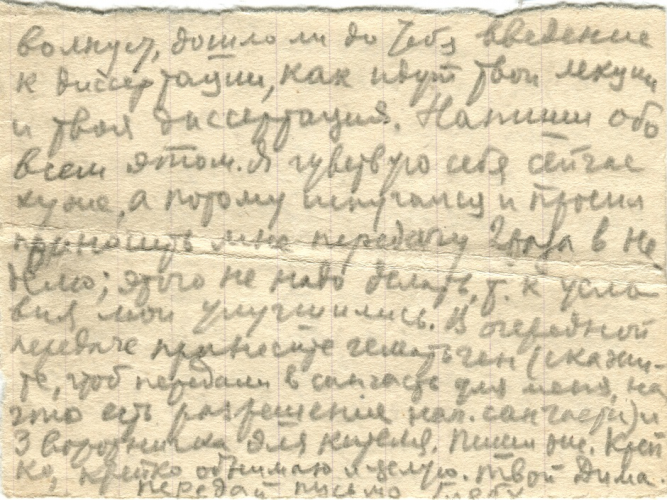 волнует, дошло ли до Тебя введение
к диссертации, как идут твои лекции
и твоя диссертация. Напиши обо
всем этом. Я чувствую себя сейчас
хуже, а потому испугался и просил
приносить мне передачу 2 раза в не
делю; этого не надо делать, т. к усло
вия мои улучшились. В очередной
передаче принесите гематоген (скажи-
те, чтоб передали в санчасть для меня, на
это есть разрешение нач. санчасти) и
3 воротничка для кителя. Пиши мне. Креп
ко, крепко обнимаю и целую. Твой Дима.
Передай письмо